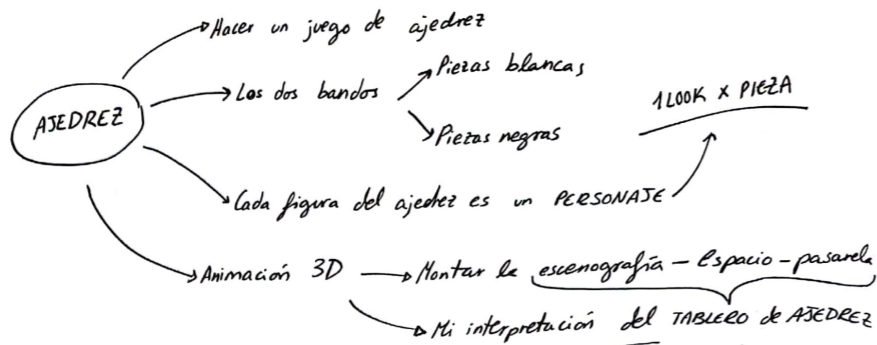 Hacer un juego de ajedrez
AJEDREZ
Los dos bandos
Piezas blancas
Piezas negras
1 LOOK X PIEZA
Cada figura del ajedrez es un PERSONAJE
Animación 3D
Montar la escenografía - Espacio - pasarela
Mi interpretación del TABLERO de AJEDREZ